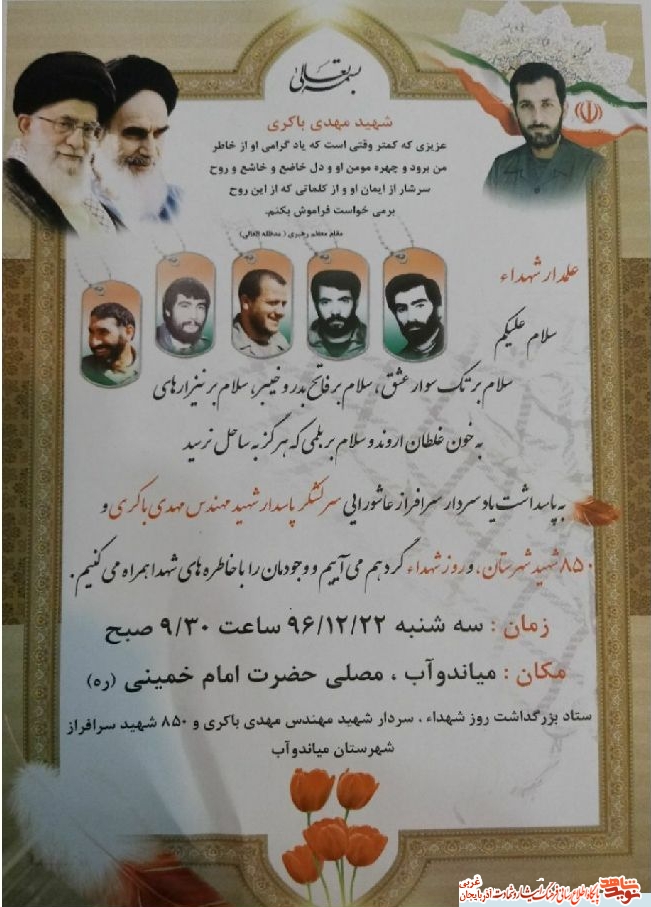 بسمه تعالی
شهید مهدی باکری
عزیزی که کمتر وقتی است که یاد گرامی او از خاطر
من برود و چهره مومن او و دل خاضع و خاشع و روح
سرشار از ایمان او و از کلماتی که از این روح
برمی خواست فراموش بکنم.
مقام معظم رهبری ( مدظله العالی)
علمدار شهداء
سلام علیکم
سلام بر تک سوار عشق، سلام بر فاتح بدر و خیبر، سلام بر نیزارهای
به خون غلطان اروند و سلام بر بلمی که هرگز به ساحل نرسید
به پاسداشت یاد سردار سرافراز عاشورایی سرلشگر پاسدار شهید مهندس مهدی باکری و
۸۵۰ شهید شهرستان، و روز شهداء گرد هم می آییم و وجودمان را با خاطره های شهدا همراه می کنیم.
زمان : سه شنبه ۹۶/۱۲/۲۲ ساعت ۹/۳۰ صبح
مکان : میاندوآب ، مصلی حضرت امام خمینی (ره)
ستاد بزرگداشت روز شهداء ، سردار شهید مهندس مهدی باکری و ۸۵۰ شهید سرافراز
شهرستان میاندوآب
نوید شاهد
پایگاه اطلاع رسانی فرهنگ ایثار و شهادت آذربایجان غربی